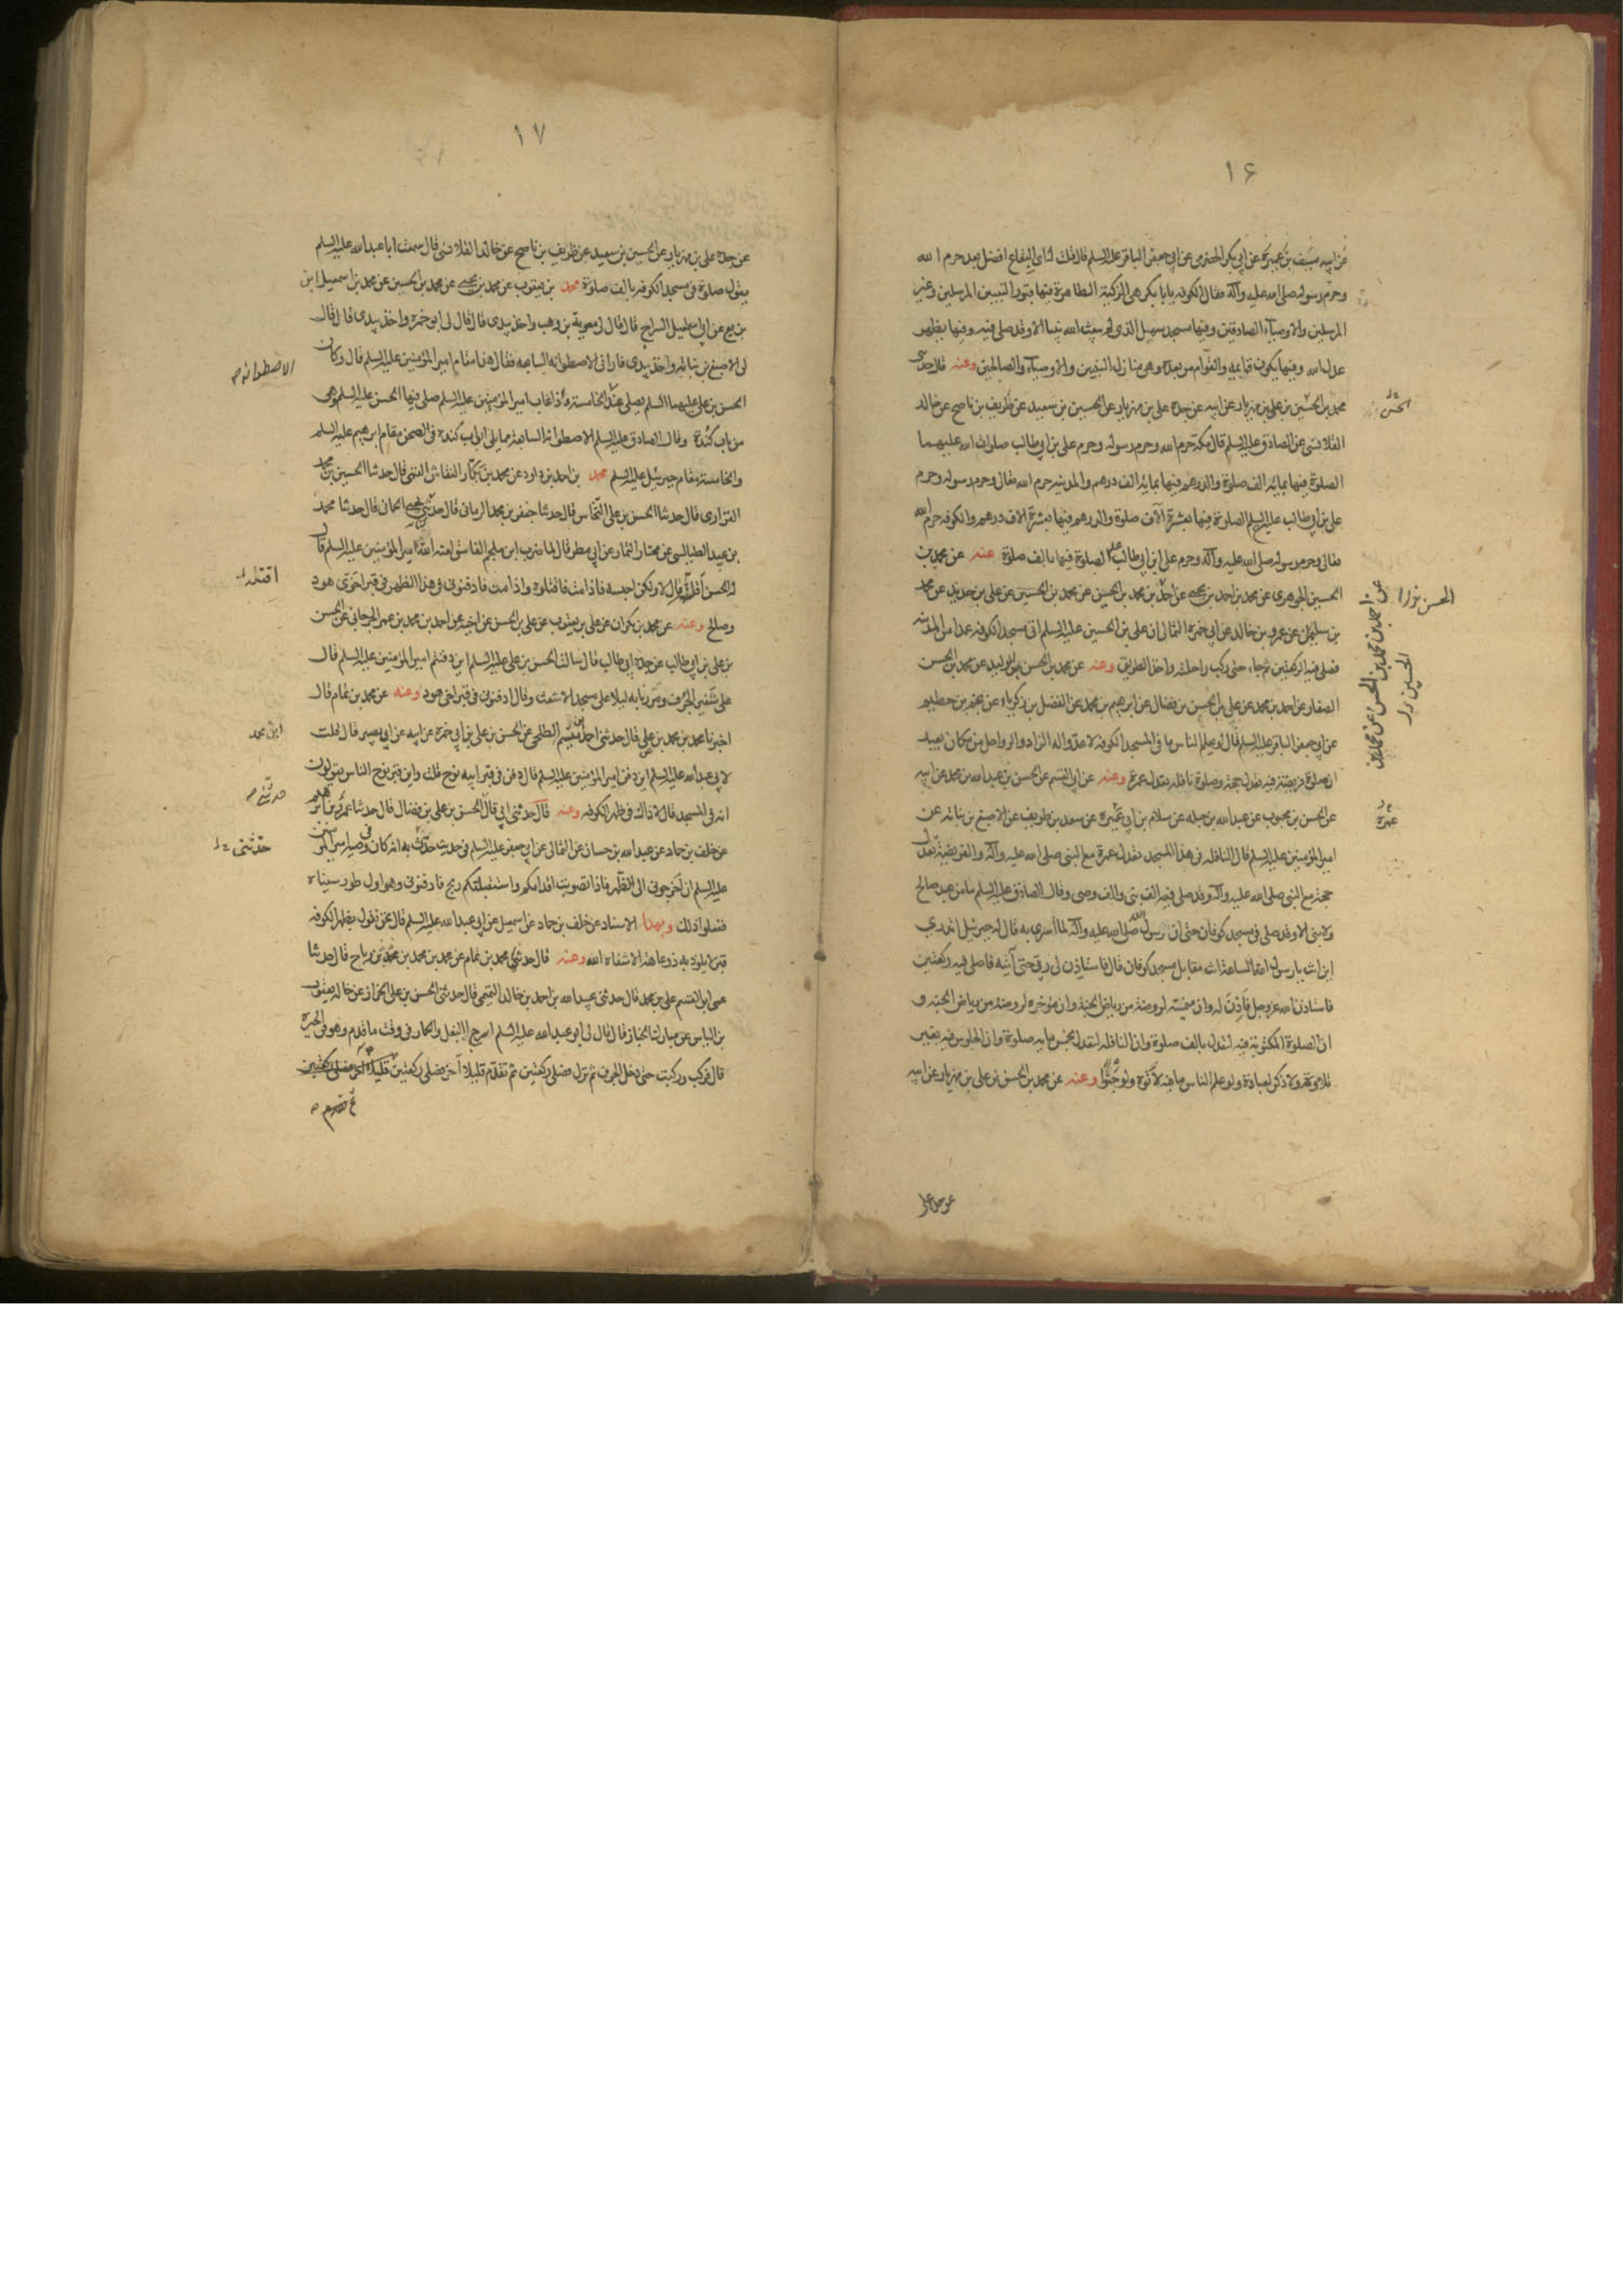 ١٦
عن ابيه سيف بن عميرة عن ابي بكر الحضرمي عن ابي جعفر الباقر عليه السلم قال قلت له اي البقاع افضل بعد حرم الله
وحرم رسوله صلى الله عليه وآله فقال الكوفه يا بابكر هي الزكية الطاهرة فيها قبور النبيين المرسلين وغير
المرسلين والاوصياء الصادقين وفيها مسجد سهيل الذي لم يبعث الله نبيا الا وقد صلى فيه وفيها يظهر
عدل الله وفيها يكون قايمه والقوام من بعده وهي منازل النبيين والاوصياء والصالحين وعنه قال حدثني
محمد بن الحسين بن علي بن مهزيار عن ابيه عن جده علي بن مهزيار عن الحسين بن سعيد عن ظريف بن ناصح عن خالد
القلانسي عن الصادق عليه السلم قال مكة حرم الله وحرم رسوله وحرم علي بن ابي طالب صلوات الله عليهما
الصلوة فيها بمايه الف صلوة والدرهم فيها بمايه الف درهم والمدينه حرم الله تعالى وحرم رسوله وحرم
علي بن ابي طالب عليه السلم الصلوة فيها بعشرة آلاف صلوة والدرهم فيها بعشرة الاف درهم والكوفه حرم الله
تعالى وحرم رسوله صلى الله عليه وآله وحرم علي ابن ابي طالب الصلوة فيها بالف صلوة عنه عن محمد بن
الحسين الجوهري عن محمد بن احمد بن يحيى عن احمد بن محمد بن الحسين عن محمد بن الحسين عن علي بن حديد عن محمد
بن سليمان عن عمرو بن خالد عن ابي حمزه الثمالي ان علي بن الحسين عليه السلم اتى مسجد الكوفه عمدا من المدينه
فصلى فيه ركعتين ثم جاء حتى ركب راحلته واخذ الطريق وعنه عن محمد بن الحسن بن الوليد عن محمد بن الحسن
الصفار عن احمد بن محمد عن علي بن الحسن بن فضال عن ابرهيم بن محمد عن الفضل بن زكرياء عن نجم بن حطيم
عن ابي جعفر الباقر عليه السلم قال لو يعلم الناس ما في المسجد الكوفه لاعدوا له الزاد والرواحل من مكان بعيد
ان صلوة فريضة فيه تعدل حجة وصلوة نافله تعدل عمرة وعنه عن ابي القسم عن الحسن بن عبد الله بن محمد عن ابيه
عن الحسن بن محبوب عن عبد الله بن جبله عن سلام بن ابي عميرة عن سعد بن طريف عن الاصبغ بن نباته عن
امير المؤمنين عليه السلم قال النافله في هذا المسجد تعدل عمرة مع النبي صلى الله عليه وآله والفريضة تعدل
حجة مع النبي صلى الله عليه وآله وقد صلى فيه الف نبي والف وصي وقال الصادق عليه السلم ما من عبد صالح
ولا نبي الا وقد صلى في مسجد كوفان حتى ان رسول الله صلى الله عليه وآله لما اسري به قال له جبرئيل اتدري
اين انت يا رسول الله الساعة انت مقابل مسجد كوفان قال فاستاذن لي ربي حتى آتيه فاصلي فيه ركعتين
فاستاذن الله عز وجل فاذن له وان ميمنته لروضة من رياض الجنة وان مؤخره لروضة من رياض الجنه و
ان الصلوة المكتوبة فيه لتعدل بالف صلوة وان النافله لتعدل بخمس مايه صلوة وان الجلوس فيه بغير
تلاوة ولا ذكر لعبادة ولو علم الناس ما فيه لاتوه ولو حبوا وعنه عن محمد بن الحسن بن علي بن مهزيار عن ابيه
الحسن
عن احمد بن محمد بن الحسن عن محمد بن
الحسين
عن جده علي
١٧
عن جده علي بن مهزيار عن الحسين بن سعيد عن ظريف بن ناصح عن خالد القلانسي قال سمعت ابا عبد الله عليه السلم
يقول صلوة في مسجد الكوفه بالف صلوة محمد بن يعقوب عن محمد بن يحيى عن محمد بن الحسين عن محمد بن اسمعيل ابن
بزيع عن ابي اسمعيل السراج قال قال لي معوية بن وهب واخذ بيدي قال قال لي ابو حمزه واخذ بيدي قال قال
لي الاصبغ بن نباته واخذ بيدي فاراني الاصطوانه السابعه فقال هذا مقام امير المؤمنين عليه السلم قال وكان
الحسن بن علي عليهما السلم يصلي عند الخامسة واذا غاب امير المؤمنين عليه السلم صلى فيها الحسن عليه السلم وهي
من باب كندة وقال الصادق عليه السلم الاصطوانة السابعة مما يلي ابواب كندة في الصحن مقام ابرهيم عليه السلم
والخامسة مقام جبرئيل عليه السلم محمد بن احمد بن داود عن محمد بن بكار النقاش القمي قال حدثنا الحسين بن محمد
الفزاري قال حدثنا الحسن بن علي النخاس قال حدثنا جعفر بن محمد الرماني قال حدثني يحيى الحماني قال حدثنا محمد
بن عبيد الطيالسي عن مختار التمار عن ابي مطر قال لما ضرب ابن ملجم الفاسق لعنه الله امير المؤمنين عليه السلم قال
له الحسن اقتله قال لا ولكن احبسه فاذا مت فاقتلوه واذا مت فادفنوني في هذا الظهر في قبر اخوي هود
وصالح وعنه عن محمد بن بكران عن علي بن يعقوب عن علي بن الحسن عن اخيه عن احمد بن محمد بن عمر الجرجاني عن الحسن
بن علي بن ابي طالب عن جده ابي طالب قال سالت الحسن بن علي عليه السلم اين دفنتم امير المؤمنين عليه السلم قال
على شفير الجرف ومررنا به ليلا على مسجد الاشعث وقال ادفنوني في قبر اخي هود وعنه عن محمد بن تمام قال
اخبرنا محمد بن محمد بن علي قال حدثني احمد بن ميثم الطلحي عن الحسن بن علي بن ابي حمزه عن ابيه عن ابي بصير قال قلت
لابي عبد الله عليه السلم اين دفن امير المؤمنين عليه السلم قال دفن في قبر ابيه نوح قلت واين قبر نوح الناس يقولون
انه في المسجد قال لا ذاك في ظهر الكوفه وعنه قال حدثني ابي قال الحسن بن علي بن فضال قال حدثنا عمرو بن ابرهيم
عن خلف بن حماد عن عبد الله بن حسان عن الثمالي عن ابي جعفر عليه السلم في حديث حدث به انه كان في وصية امير المؤمنين
عليه السلم ان اخرجوني الى الظهر فاذا تصوبت اقدامكم واستقبلتكم ريح فادفنوني وهو اول طور سيناء
ففعلوا ذلك وبهذا الاسناد عن خلف بن حماد عن اسمعيل عن ابي عبد الله عليه السلم قال نحن نقول بظهر الكوفه
قبر لا يلوذ به ذو عاهة الا شفاه الله وعنه قال حدثني محمد بن تمام عن محمد بن محمد بن رباح قال حدثنا
عمي ابو القسم علي بن محمد قال حدثني عبيد الله بن احمد بن خالد التميمي قال حدثني الحسن بن علي الخزاز عن خاله يعقوب
بن الياس عن مبارك الخباز قال قال لي ابو عبد الله عليه السلم اسرج البغل والحمار في وقت ما قدم وهو في الحيرة
قال فركب وركبت حتى دخل الجرف ثم نزل فصلى ركعتين ثم تقدم قليلا آخر فصلى ركعتين
ثم تقدم
الاصطوانه
اقتله
ابن محمد
حدثني
حدثني